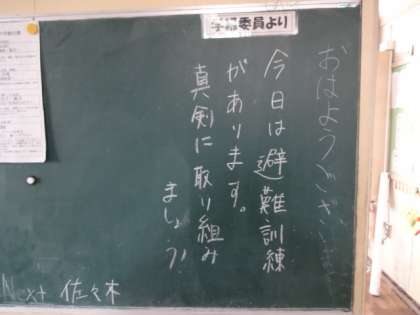 学級委員より
おはようございます
今日は避難訓練
があります。
真剣に取り組み
ましょう!
Next 佐々木